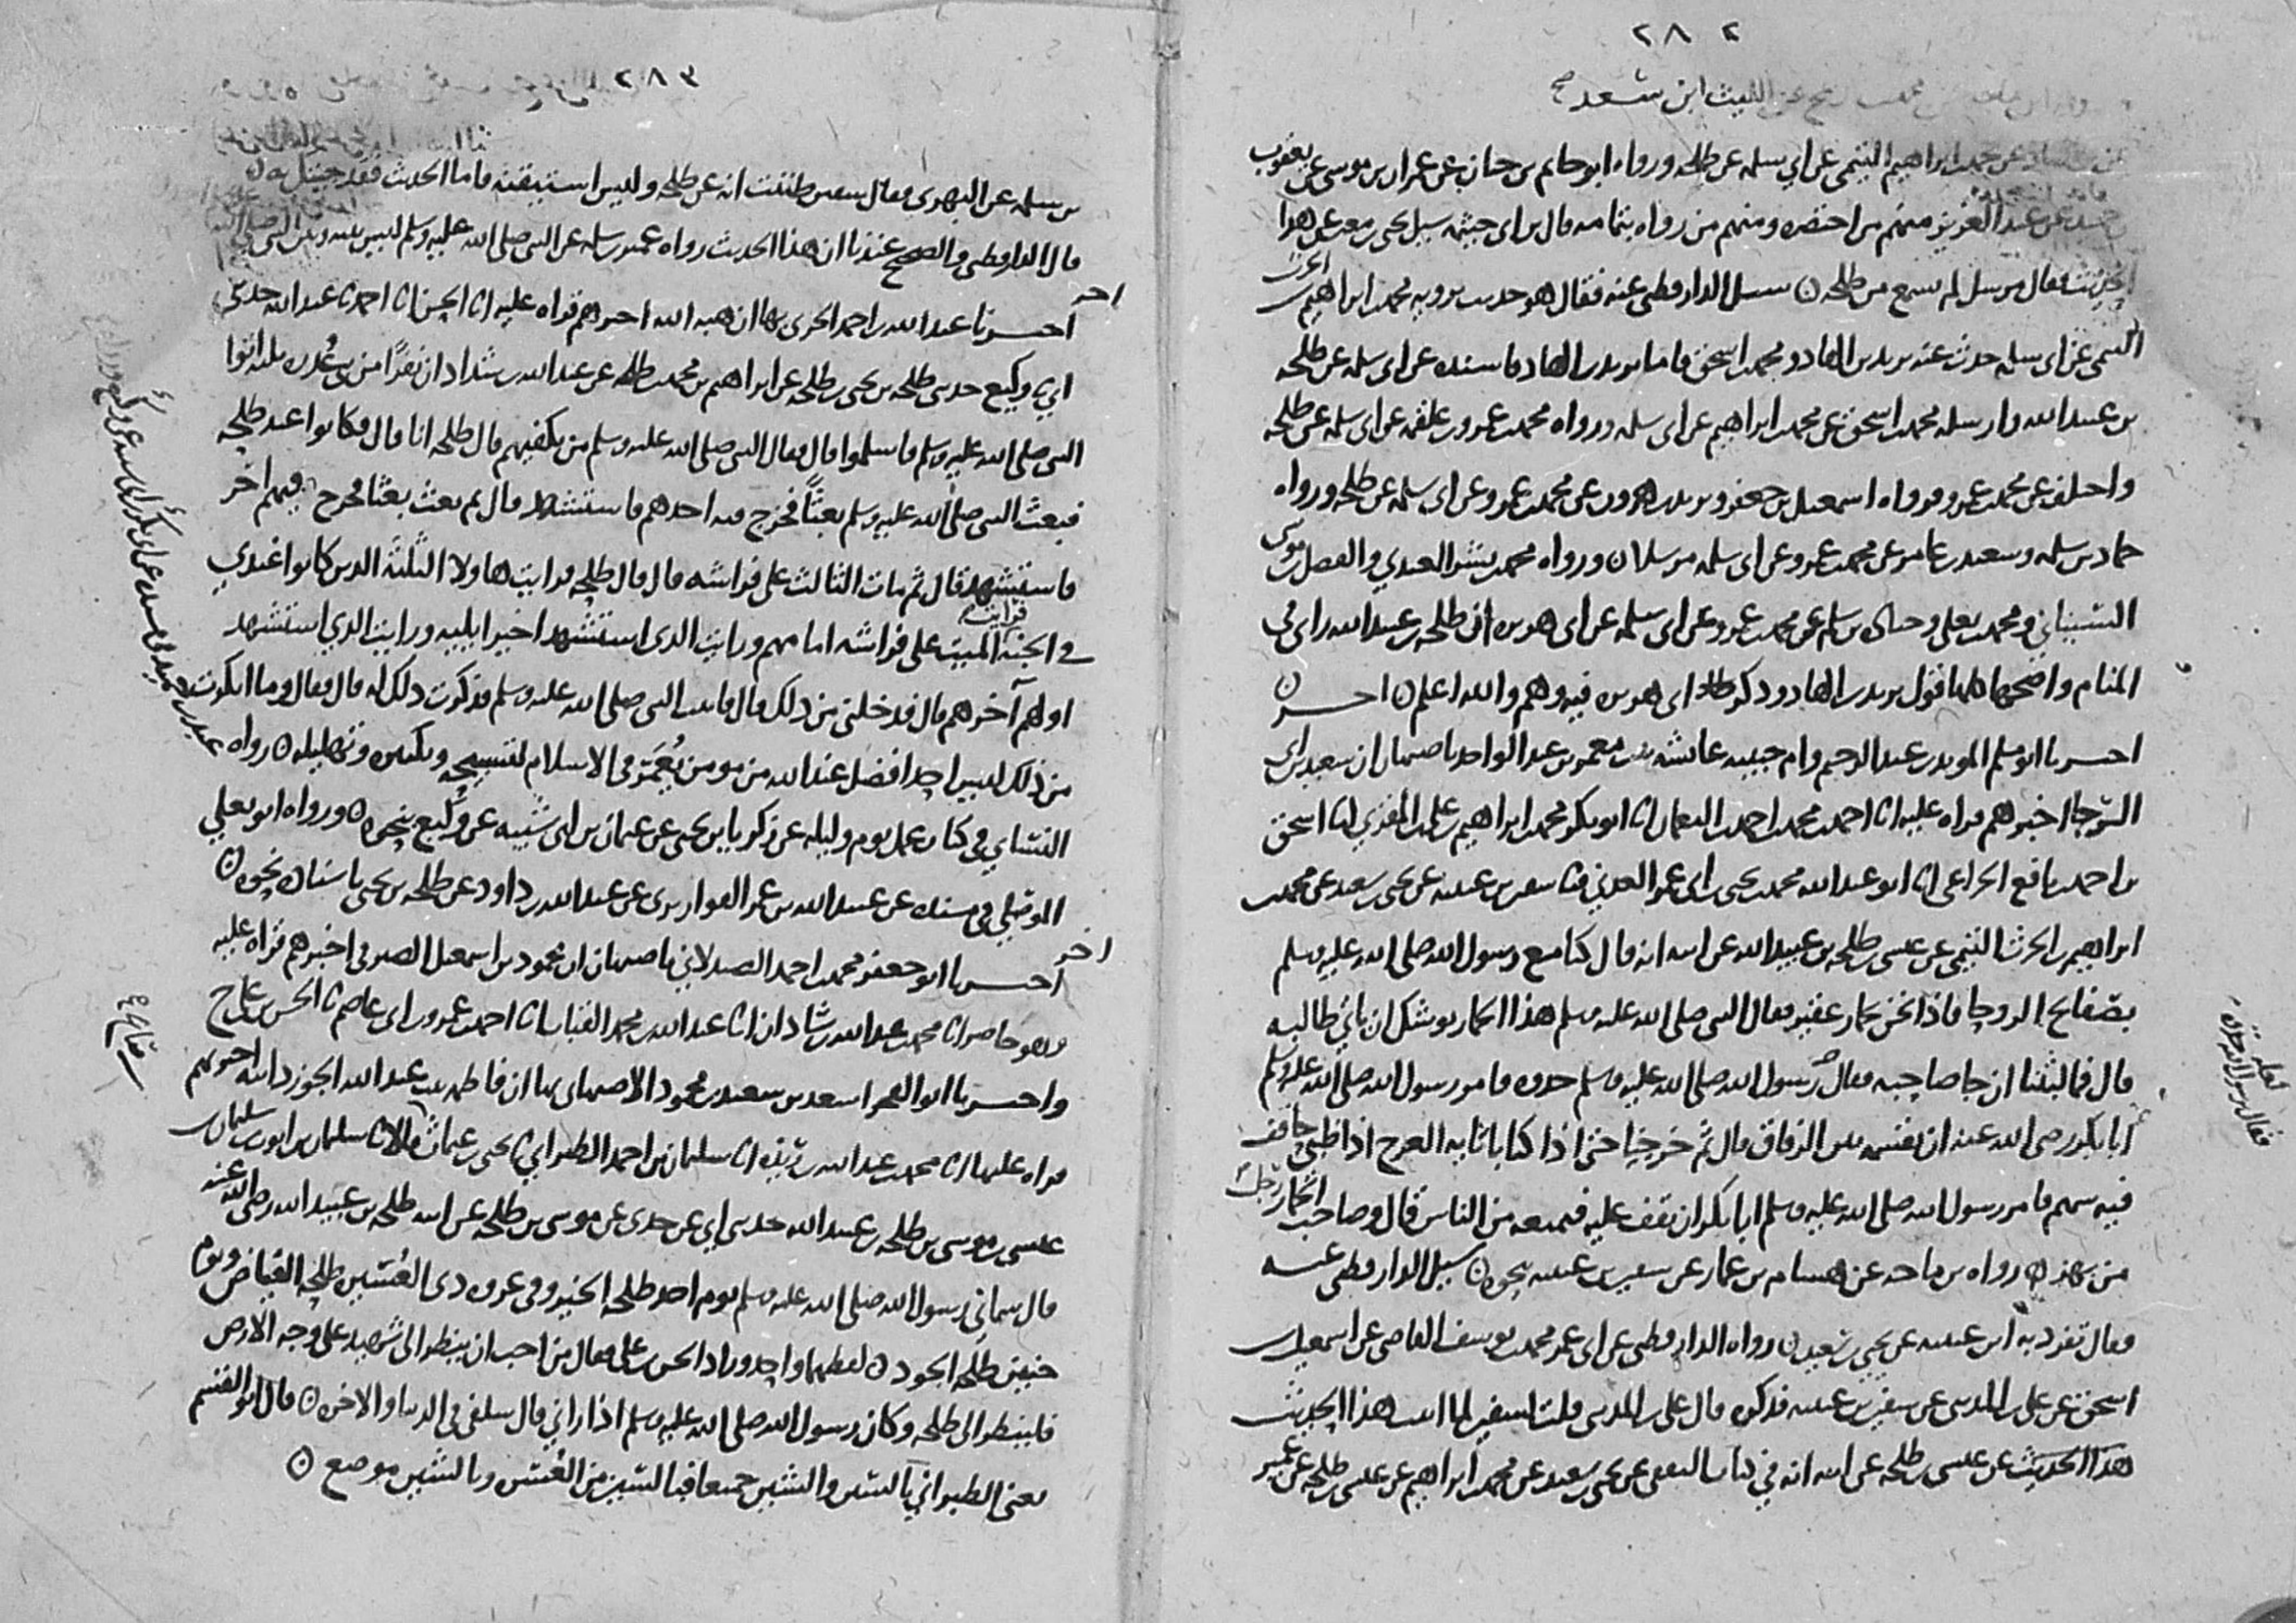 ٢٨٢
الليث ابن سعد صح
عن محمد بن ابراهيم التيمي عن ابي سلمه عن طلحه ورواه ابو حاتم بن حبان عن عمران بن موسى عن يعقوب
عن عبد العزيز منهم من اختصره ومنهم من رواه بتمامه قال بن ابي خيثمه سيل يحيى بن معين عن هذا
الحديث فقال مرسل لم يسمع من طلحه ن سيل الدارقطني عنه فقال هو حديث يرويه محمد بن ابراهيم بن الحرث
التيمي عن ابي سلمه حدث عنه يزيد بن الهاد ومحمد بن اسحق فاما يزيد بن الهاد فاسنده عن ابي سلمه عن طلحه
بن عبيد الله وارسله محمد بن اسحق عن محمد بن ابراهيم عن ابي سلمه ورواه محمد بن عمرو بن علقمه عن ابي سلمه عن طلحه
واختلف عن محمد بن عمرو فرواه اسمعيل بن جعفر ويزيد بن هرون عن محمد بن عمرو عن ابي سلمه عن طلحه ورواه
حماد بن سلمه وسعيد بن عامر عن محمد بن عمرو عن ابي سلمه مرسلا ن ورواه محمد بن بشر العبدي والفضل بن موسى
السيناني ومحمد بن يعلى وحماد بن سلمه عن محمد بن عمرو عن ابي سلمه عن ابي هريره ان طلحه بن عبيد الله راى في
المنام واصحها كلها قول يزيد بن الهاد وذكر ابي هريره فيه وهم والله اعلم ن اخر
اخبرنا ابو مسلم المويد بن عبد الرحيم وام حبيبه عايشه بنت معمر بن عبد الواحد باصبهان ان سعيد بن ابي
الرجا اخبرهم قراه عليه انا احمد بن محمد بن احمد بن النعمان انا ابو بكر محمد بن ابراهيم بن علي بن المقري انا اسحق
بن احمد بن نافع الخزاعي انا ابو عبد الله محمد بن يحيى بن ابي عمر العدني ثنا سفين بن عيينه عن يحيى بن سعيد عن محمد بن
ابراهيم بن الحرث التيمي عن عيسى بن طلحه بن عبيد الله عن ابيه انه قال كنا مع رسول الله صلى الله عليه وسلم
بصفايح الروحا فاذا نحن بحمار عقير فقال النبي صلى الله عليه وسلم هذا الحمار يوشك ان ياتي طالبه
قال فما لبثنا ان جا صاحبه فقال رسول الله صلى الله عليه وسلم خذوه فامر رسول الله صلى الله عليه وسلم
ابا بكر رضي الله عنه ان يقسمه بين الرفاق قال ثم خرجنا حتى اذا كنا بالاثايه العرج اذا ظبي حاقف
فيه سهم فامر رسول الله صلى الله عليه وسلم ابا بكر ان يقف عليه فيمنعه من الناس قال وصاحب الحمار رجل
من بهز ن رواه بن ماجه عن هشام بن عمار عن سفين بن عيينه نحوه ن سيل الدارقطني عنه
فقال تفرد به ابن عيينه عن يحيى بن سعيد ن رواه الدارقطني عن ابي عمر محمد بن يوسف القاضي عن اسمعيل بن
اسحق عن علي بن المديني عن سفين بن عيينه فذكره قال علي بن المديني قلت لسفين هذا الحديث
هذا الحديث عن عيسى بن طلحه عن ابيه انه في كتاب الثقفي عن يحيى بن سعيد عن محمد بن ابراهيم عن عيسى بن طلحه عن عمير
لعله
فقال رسول الله
٢٨٣
بن سلمه عن البهزي فقال سفين ظننت انه عن طلحه وليس استيقنه فاما الحديث فقد جيتك به ن
قال الدارقطني والصحيح عندنا ان هذا الحديث رواه عمير بن سلمه عن النبي صلى الله عليه وسلم ليس بينه وبين النبي صلى الله
اخر
اخبرنا عبد الله بن احمد الحربي بها ان هبه الله اخبرهم قراه عليه انا الحسن انا احمد ثنا عبد الله حدثني
ابي ثنا وكيع حدثني طلحه بن يحيى بن طلحه عن ابراهيم بن محمد بن طلحه عن عبد الله بن شداد ان نفرا من بني عذره ثلثه اتوا
النبي صلى الله عليه وسلم فاسلموا قال فقال النبي صلى الله عليه وسلم من يكفيهم قال طلحه انا قال فكانوا عند طلحه
فبعث النبي صلى الله عليه وسلم بعثا فخرج فيه احدهم فاستشهد قال ثم بعث بعثا فخرج فيهم اخر
فاستشهد قال ثم مات الثالث على فراشه قال قال طلحه فرايت هاولا الثلثه الذين كانوا عندي
في الجنه فرايت الميت على فراشه امامهم ورايت الذي استشهد اخيرا يليه ورايت الذي استشهد
اولهم آخرهم قال فدخلني من ذلك قال فاتيت النبي صلى الله عليه وسلم فذكرت ذلك له قال فقال وما انكرت
من ذلك ليس احد افضل عند الله من مومن يعمر في الاسلام لتسبيحه وتكبيره وتهليله ن رواه
النسائي في كتاب عمل يوم وليله عن زكريا بن يحيى عن عثمان بن ابي شيبه عن وكيع بنحوه ن ورواه ابو يعلي
الموصلي في مسنده عن عبيد الله بن عمر القواريري عن عبد الله بن داود عن طلحه بن يحيى باسناده نحوه ن
اخر
اخبرنا ابو جعفر محمد بن احمد الصيدلاني باصبهان ان محمود بن اسمعيل الصيرفي اخبرهم قراه عليه
وهو حاضر انا محمد بن عبد الله بن شاذان انا عبد الله بن محمد القباب انا احمد بن عمرو بن ابي عاصم ثنا الحسن بن علي ح
واخبرنا ابو الفخر اسعد بن سعيد بن محمود الاصبهاني بها ان فاطمه بنت عبد الله الجوزدانيه اخبرتهم
قراه عليها انا محمد بن عبد الله بن ريذه انا سليمان بن احمد الطبراني ثنا يحيى بن عثمان قالا ثنا سليمان بن ايوب بن سليمان بن
عيسى بن موسى بن طلحه بن عبيد الله حدثني ابي عن جدي عن موسى بن طلحه عن ابيه طلحه بن عبيد الله رضي الله عنه
قال سماني رسول الله صلى الله عليه وسلم يوم احد طلحه الخير وفي غزوه ذي العشيره طلحه الفياض ويوم
حنين طلحه الجود ن لفظهما واحد وزاد الحسن بن علي فقال من احب ان ينظر الى شهيد على وجه الارض
فلينظر الى طلحه وكان رسول الله صلى الله عليه وسلم اذا راني قال سلفي في الدنيا والاخره ن قال ابو القسم
يعني الطبراني بالسين والشين جميعا فبالسين من العسر وبالشين موضع ن